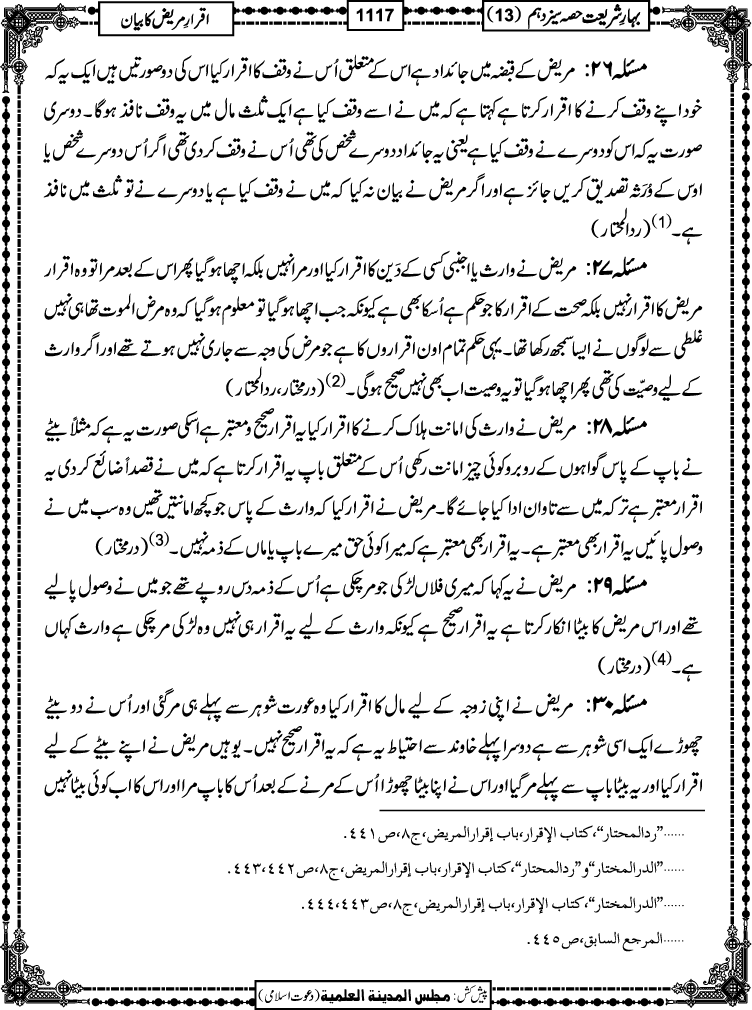 بہارِ شریعت حصہ سیزدہم (13)
1117
اقرارِ مریض کا بیان
مسئلہ ۲۶: مریض کے قبضہ میں جائداد ہے اس کے متعلق اُس نے وقف کا اقرار کیا اس کی دو صورتیں ہیں ایک یہ کہ
خود اپنے وقف کرنے کا اقرار کرتا ہے کہتا ہے کہ میں نے اسے وقف کیا ہے ایک ثلث مال میں یہ وقف نافذ ہوگا۔ دوسری
صورت یہ کہ اس کو دوسرے نے وقف کیا ہے یعنی یہ جائداد دوسرے شخص کی تھی اُس نے وقف کر دی تھی اگر اُس دوسرے شخص یا
اوس کے وُرَثہ تصدیق کریں جائز ہے اور اگر مریض نے بیان نہ کیا کہ میں نے وقف کیا ہے یا دوسرے نے تو ثلث میں نافذ
ہے۔(1) (ردالمحتار)
مسئلہ ۲۷: مریض نے وارث یا اجنبی کسی کے دَین کا اقرار کیا اور مرا نہیں بلکہ اچھا ہو گیا پھر اس کے بعد مرا تو وہ اقرار
مریض کا اقرار نہیں بلکہ صحت کے اقرار کا جو حکم ہے اُسکا بھی ہے کیونکہ جب اچھا ہوگیا تو معلوم ہوگیا کہ وہ مرض الموت تھا ہی نہیں
غلطی سے لوگوں نے ایسا سمجھ رکھا تھا۔ یہی حکم تمام اون اقراروں کا ہے جو مرض کی وجہ سے جاری نہیں ہوتے تھے اور اگر وارث
کے لیے وصیّت کی تھی پھر اچھا ہوگیا تو یہ وصیت اب بھی نہیں صحیح ہوگی۔(2) (درمختار، ردالمحتار)
مسئلہ ۲۸: مریض نے وارث کی امانت ہلاک کرنے کا اقرار کیا یہ اقرار صحیح و معتبر ہے اسکی صورت یہ ہے کہ مثلاً بیٹے
نے باپ کے پاس گواہوں کے روبرو کوئی چیز امانت رکھی اُس کے متعلق باپ یہ اقرار کرتا ہے کہ میں نے قصداً ضائع کر دی یہ
اقرار معتبر ہے ترکہ میں سے تاوان ادا کیا جائے گا۔ مریض نے اقرار کیا کہ وارث کے پاس جو کچھ امانتیں تھیں وہ سب میں نے
وصول پائیں یہ اقرار بھی معتبر ہے۔ یہ اقرار بھی معتبر ہے کہ میرا کوئی حق میرے باپ یا ماں کے ذمہ نہیں۔(3) (درمختار)
مسئلہ ۲۹: مریض نے یہ کہا کہ میری فلاں لڑکی جو مرچکی ہے اُس کے ذمہ دس روپے تھے جو میں نے وصول پالیے
تھے اور اس مریض کا بیٹا انکار کرتا ہے یہ اقرار صحیح ہے کیونکہ وارث کے لیے یہ اقرار ہی نہیں وہ لڑکی مرچکی ہے وارث کہاں
ہے۔(4) (درمختار)
مسئلہ ۳۰: مریض نے اپنی زوجہ کے لیے مال کا اقرار کیا وہ عورت شوہر سے پہلے ہی مرگئی اور اُس نے دو بیٹے
چھوڑے ایک اسی شوہر سے ہے دوسرا پہلے خاوند سے احتیاط یہ ہے کہ یہ اقرار صحیح نہیں۔ یوہیں مریض نے اپنے بیٹے کے لیے
اقرار کیا اور یہ بیٹا باپ سے پہلے مرگیا اور اس نے اپنا بیٹا چھوڑا اُس کے مرنے کے بعد اُس کا باپ مرا اور اس کا اب کوئی بیٹا نہیں
......"ردالمحتار"، کتاب الإقرار، باب إقرارالمریض، ج۸، ص۴۴۱.
......"الدرالمختار" و "ردالمحتار"، کتاب الإقرار، باب إقرارالمریض، ج۸، ص۴۴۲، ۴۴۳.
......"الدرالمختار"، کتاب الإقرار، باب إقرارالمریض، ج۸، ص۴۴۳، ۴۴۴.
......المرجع السابق، ص۴۴۵.
پیش کش: مجلس المدینة العلمیة (دعوت اسلامی)